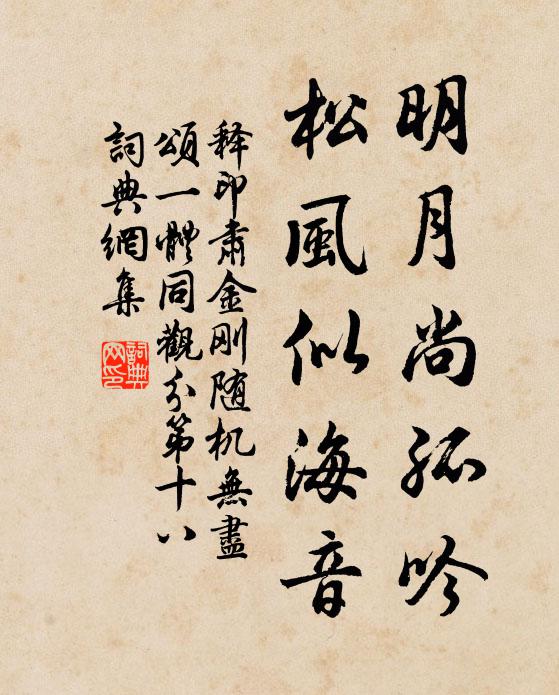 明月尚孤吟
松風似海音
释印肃金刚随机無盡
頌一體同觀分第十八
詞典網集
詞典網印